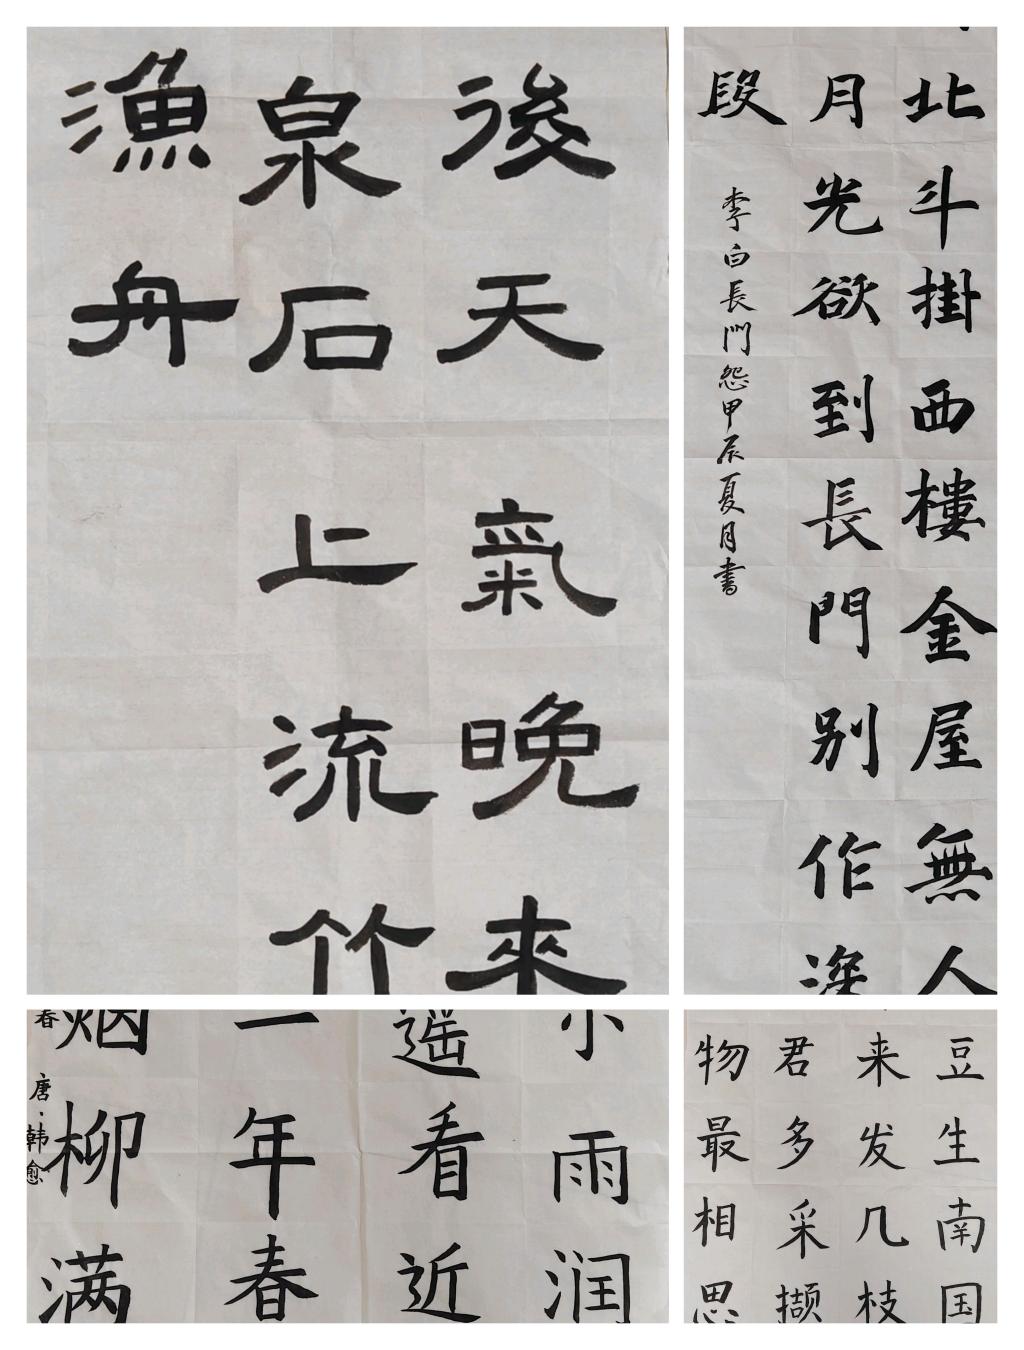 後天氣晚來
泉石上流竹
漁舟
北斗掛西樓金屋無人
月光欲到長門別作深
段
李白長門怨甲辰夏月書
小雨润
遥看近
一年春
烟柳满
春 唐、韩愈
豆生南国
来发几枝
君多采撷
物最相思